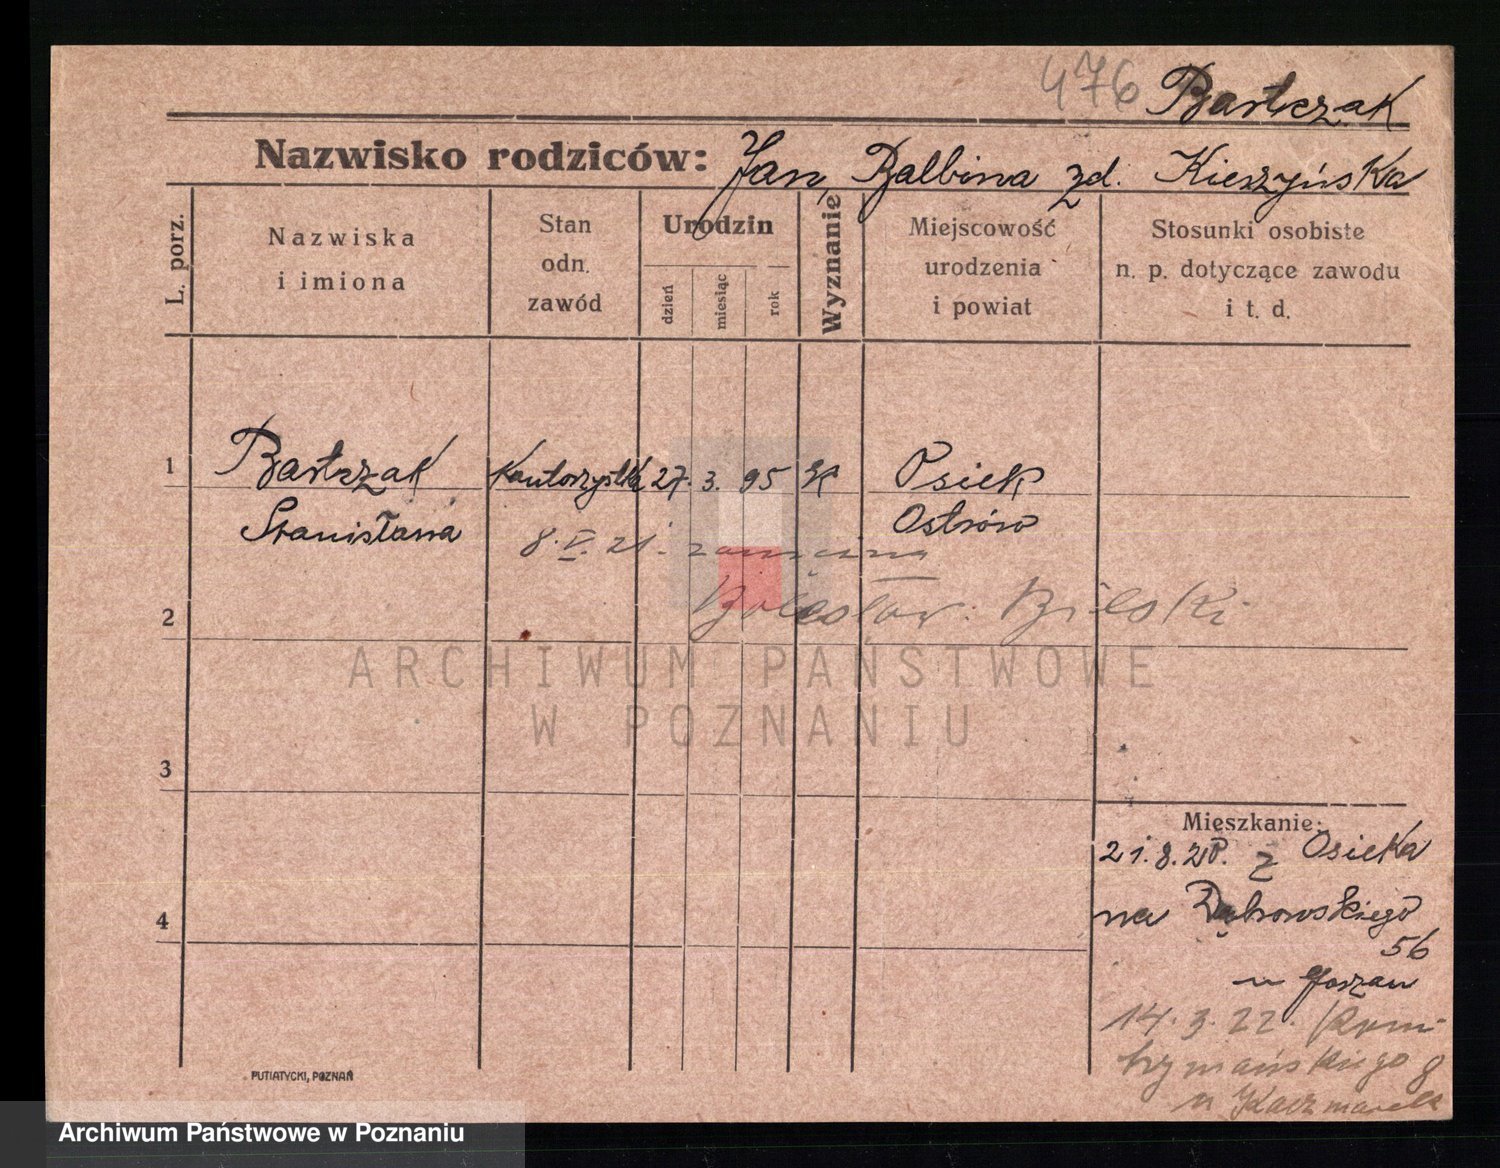 476 Bartczak
Nazwisko rodziców: Jan, Balbina zd. Kieszyńska
L. porz.
Nazwiska
i imiona
Stan
odn.
zawód
Urodzin
dzień
miesiąc
rok
Wyznanie
Miejscowość
urodzenia
i powiat
Stosunki osobiste
n. p. dotyczące zawodu
i t. d.
1 Bartczak Kantorzystka 27. 3. 95 K Osiek
Stanisława Ostrów
8. V. 21. zamężna
2 Bolesław Bilski
ARCHIWUM PAŃSTWOWE
W POZNANIU
3
Mieszkanie:
21.8.20. z Osieka
na Dąbrowskiego
4
56
u
14.3.22.
8
u Kaczmarek
PUTIATYCKI, POZNAŃ
Archiwum Państwowe w Poznaniu